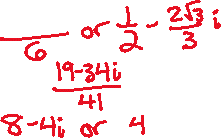 6 or 1/2 - 2√3/3 i
19-34i/41
8-4i or 4